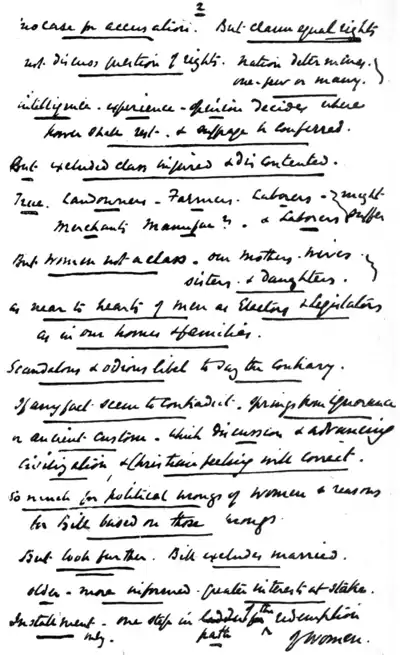 2
no case for accusation. But claim equal rights
not discuss question of rights. nation determines.
one-few or many.
intelligence - experience - opinion decides where
power shall rest. & suffrage be conferred.
But excluded class injured & discontented.
True. Landowners - Farmers. Laborers - might
Merchants Manufrs. & Laborers suffer
But Women not a class. our mothers. wives.
sisters. & Daughters.
as near to hearts of men as Electors & Legislators
as in our homes & families.
Scandalous & odious libel to say the contrary.
If any fact seem to contradict. springs from ignorance
or ancient custom. which discussion & advancing
civilization, & Christian feeling will correct.
So much for political wrongs of women & reasons
for Bill based on those wrongs.
But look further. Bill excludes married.
older - more informed. greater interests at stake.
Instalment - one step in ladder of the redemption
only. path of women.